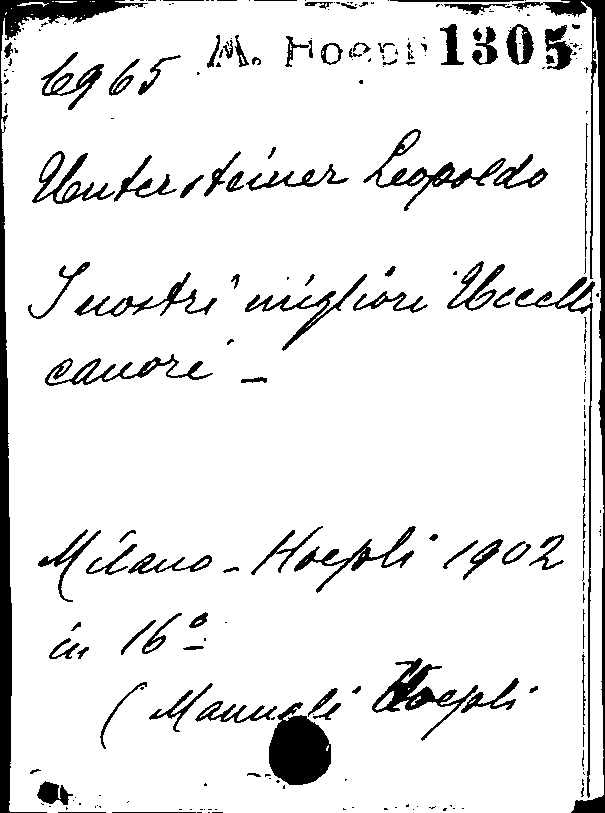 6965 M. Hoepli 1305
Untersteiner Leopoldo
I nostri migliori Uccelli
canori -
Milano - Hoepli 1902
in 16º
(Manuali Hoepli